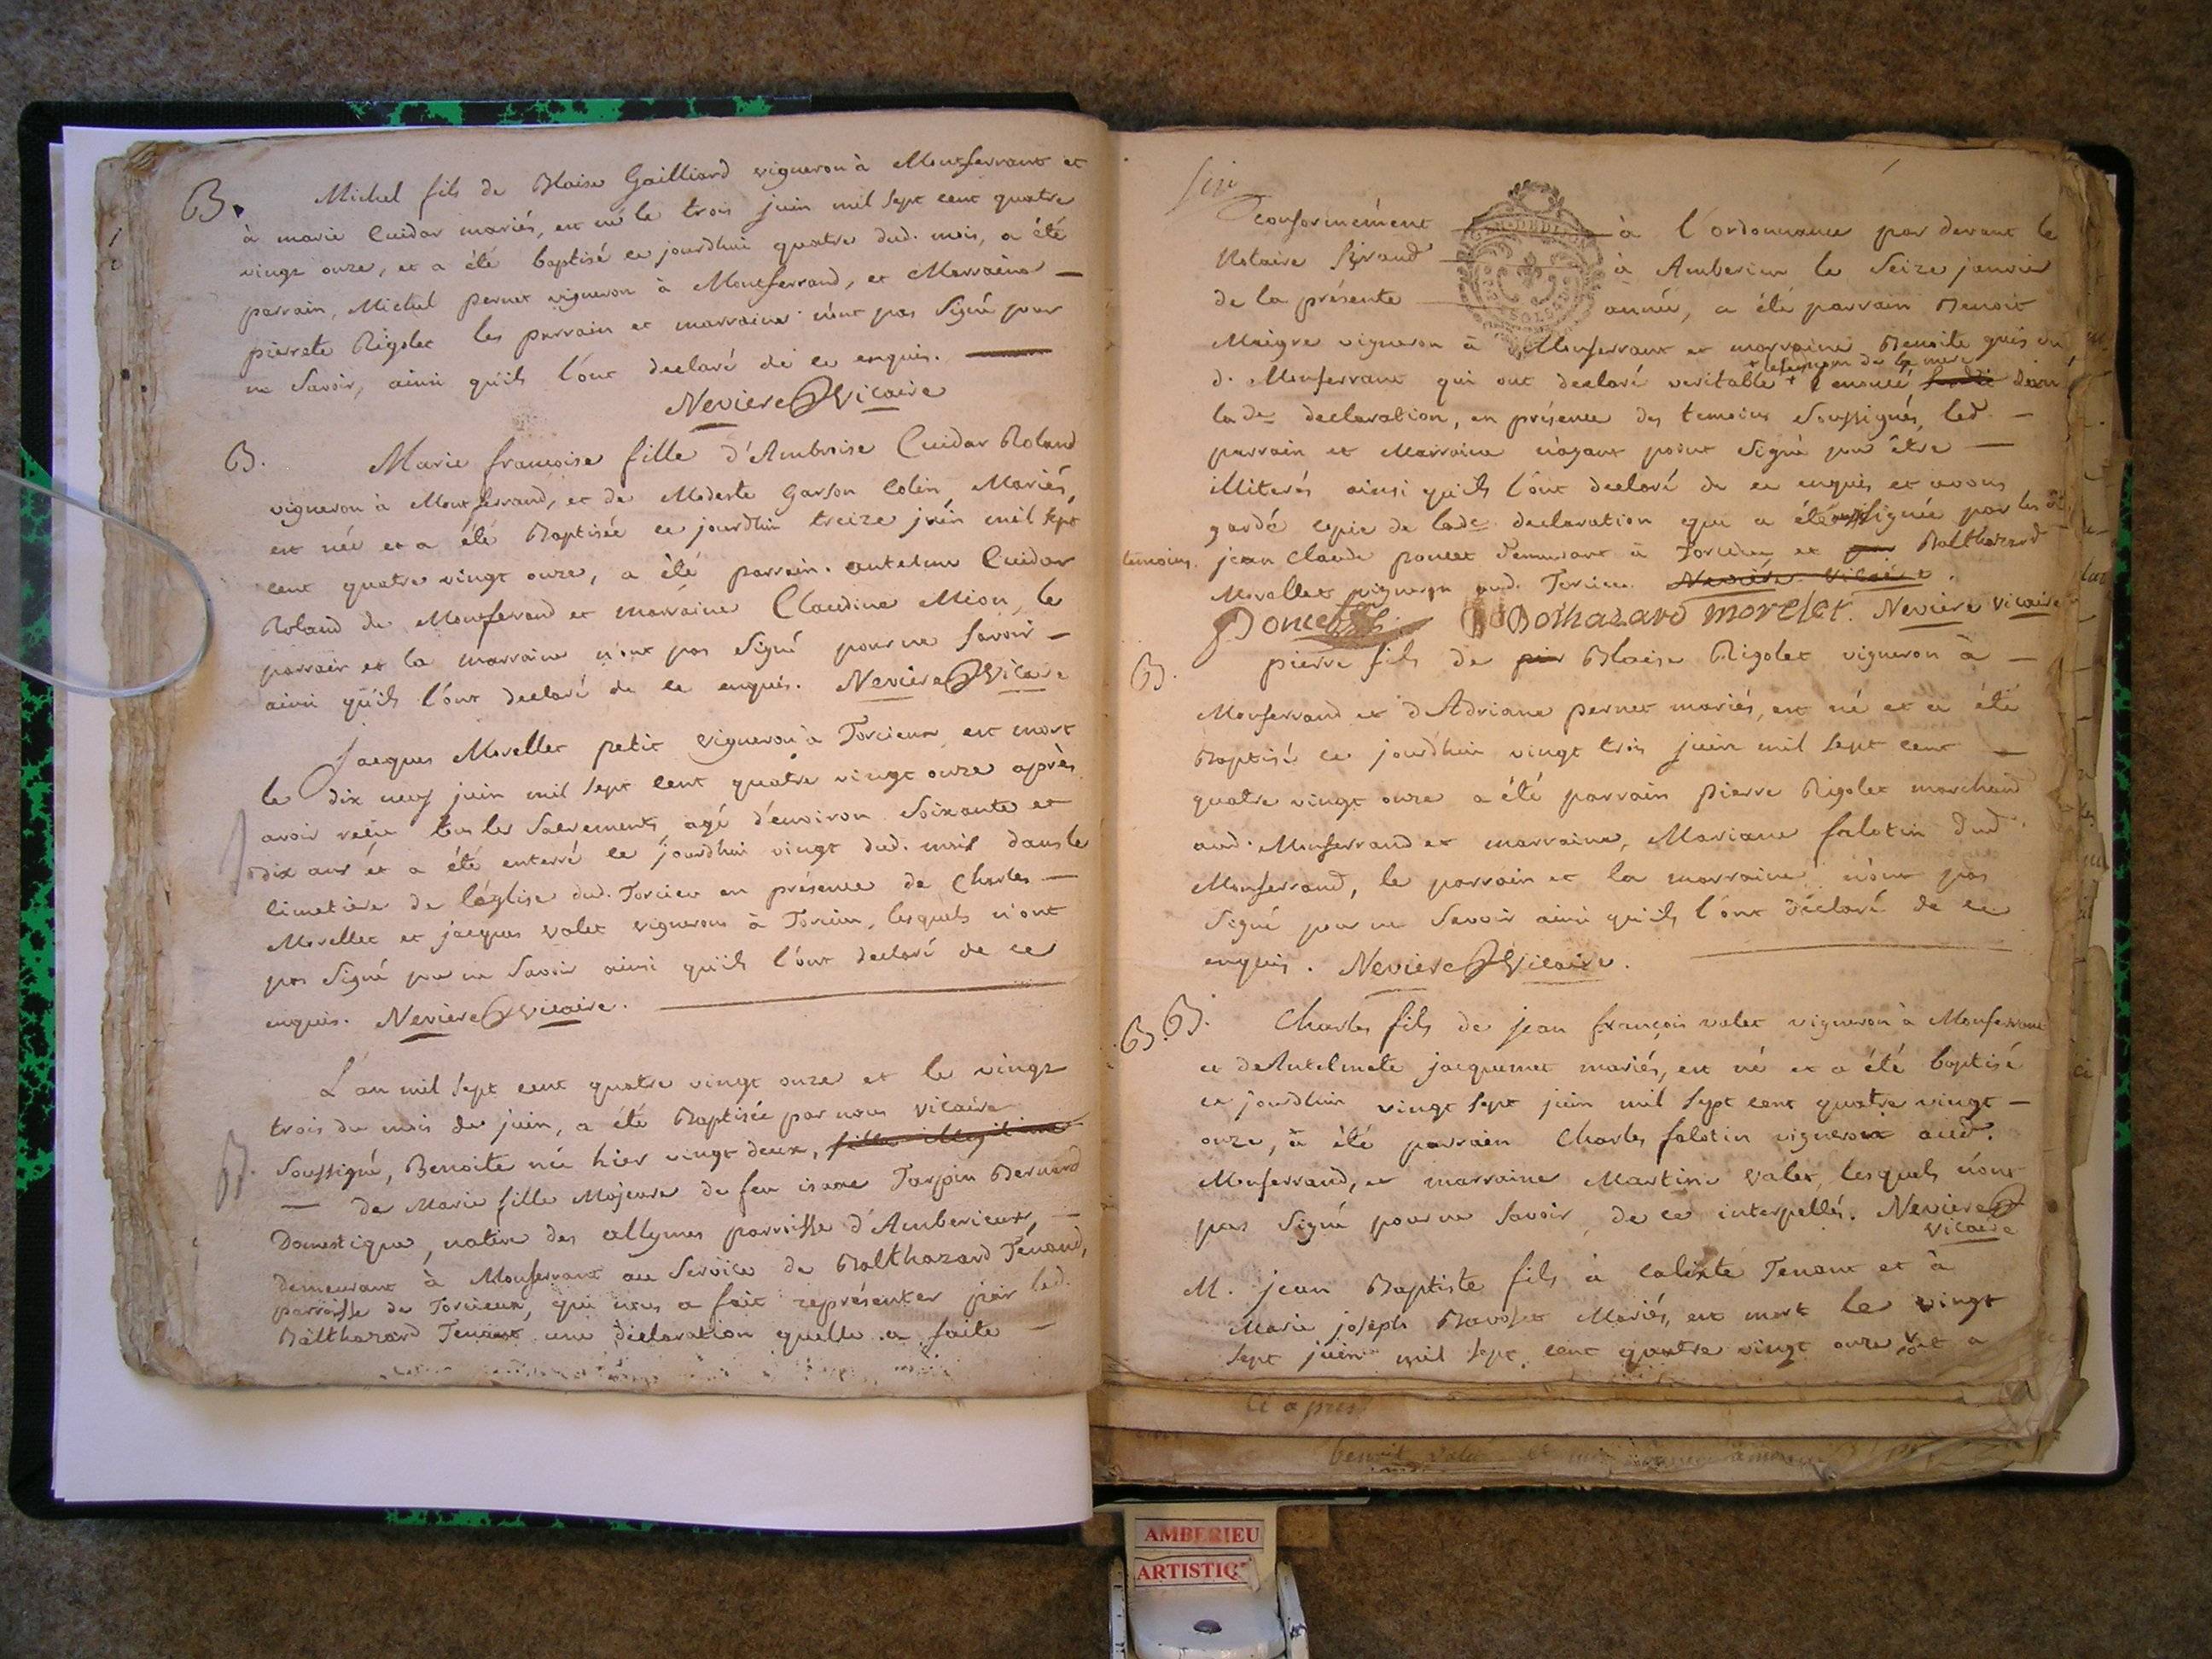 B. Michel fils de Blaise Gailliard vigneron à Montferrant et
à marie Cuidar mariés, est né le trois juin mil sept cent quatre
vingt onze, et a été baptisé ce jourdhui quatre dud. mois, a été
parrain, Michel pernet vigneron à Montferrand, et Marraine —
pierrete Rigolet les parrain et marraine n'ont pas Signé pour
ne Savoir, ainsi qu'ils l'ont declaré de ce enquis. —
Neviere Vicaire
B. Marie francoise fille d'Ambroise Cuidar Roland
vigneron à Montferrand, et de Modeste Garson Colin, Mariés,
est née et a été Baptisée ce jourdhui treize juin mil sept
cent quatre vingt onze, a été parrain. antelme Cuidar
Roland de Montferand et marraine Claudine Mion, le
parrain et la marraine n'ont pas Signé pour ne savoir —
ainsi qu'ils l'ont declaré de ce enquis. Neviere Vicaire
Jacques Morellet petit vigneron à Torcieux est mort
le dix neuf juin mil sept cent quatre vingt onze après
avoir reçu tous les Sacrements, agé d'environ Soixante et
dix ans et a été enterré ce jourdhui vingt dud. mois dans le
Cimetière de l'église dud. Torcieu en présence de Charles —
Morellet et jacques valet vignerons à Torcieu, lesquels n'ont
pas Signé pour ne Savoir ainsi qu'ils l'ont declaré de ce
enquis. Neviere Vicaire.
L'an mil sept cent quatre vingt onze et le vingt
trois du mois de juin, a été Baptisée par nous vicaire
B. Soussigné, Benoite née hier vingt deux, fille illegitime
— de Marie fille Majeure de feu isaac Tarpin Bernard
Domestique, native des allymes parroisse d'Amberieux, —
demeurant à Monferrant au Service de Balthazard Tenand,
parroisse de Torcieux, qui nous a fait représenter par led.
Balthazard Tenant une déclaration quelle a faite —
conformément à l'ordonnance par devant le
Notaire Sirand à Amberieu le Seize janvier
de la présente année, a été parrain Benoit
Maigre vigneron à Monferrant et marraine Benoite guis du
+ le surnom de la mere
d. Monferrant qui ont declaré veritable + enoncé dans
lade declaration, en présence des temoins Soussignés, led. —
parrain et Marraine n'ayant point Signé pour être —
illiterés ainsi qu'ils l'ont declaré de ce enquis et avons
gardé copie de lade declaration qui a été signée par les d.
temoins. jean Claude poncet demeurant à Torcieu et par Balthazard
Morellet vigneron aud. Torcieu. Neviere Vicaire.
Poncet Bathazard morelet. Neviere Vicaire
B. pierre fils de pier Blaise Rigolet vigneron à —
Monferrand et d'Adriane pernet mariés, est né et a été
Baptisé ce jourdhui vingt trois juin mil sept cent —
quatre vingt onze a été parrain pierre Rigolet marchand
aud. Monferrand et marraine, Mariane falotin dud.
Monferrand, le parrain et la marraine n'ont pas
Signé pour ne Savoir ainsi qu'ils l'ont déclaré de ce
enquis. Neviere Vicaire.
B. B. Charles fils de jean françois valet vigneron à Monferrand
et de Antelmete jacquemet mariés, est né et a été baptisé
ce jourdhui vingt sept juin mil sept cent quatre vingt —
onze, a été parrain Charles falotin vigneron aud.
Monferrand, et marraine Martine valet, lesquels n'ont
pas Signé pour ne Savoir, de ce interpellés. Neviere
Vicaire
M. jean Baptiste fils à calixte Tenant et à
Marie joseph Mariés, est mort le vingt
sept juin mil sept cent quatre vingt onze, et a
ci apres
AMBERIEU
ARTISTIQ